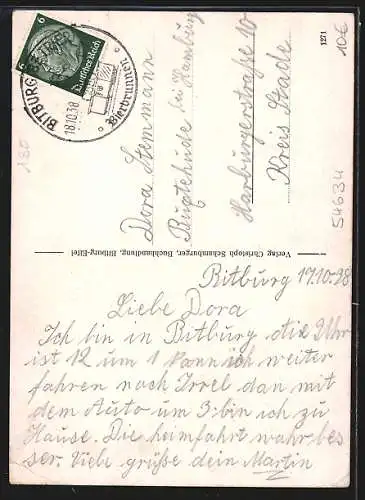 6 6
Deutsches Reich
BITBURG
18.10.38
Bierbrunnen
1271
10€
180
54634
Dora Stemmann
Buxtehude bei Hamburg
Harburgerstraße 10
Kreis Stade
Verlag Christoph Schaumburger, Buchhandlung, Bitburg-Eifel
Bitburg 17.10.38
Liebe Dora
Ich bin in Bitburg die Uhr
ist 12 um 1 kann ich weiter
fahren nach Irrel dan mit
dem Auto um 3 bin ich zu
Hause. Die heimfahrt wahr bes
ser. Viele grüße dein Martin